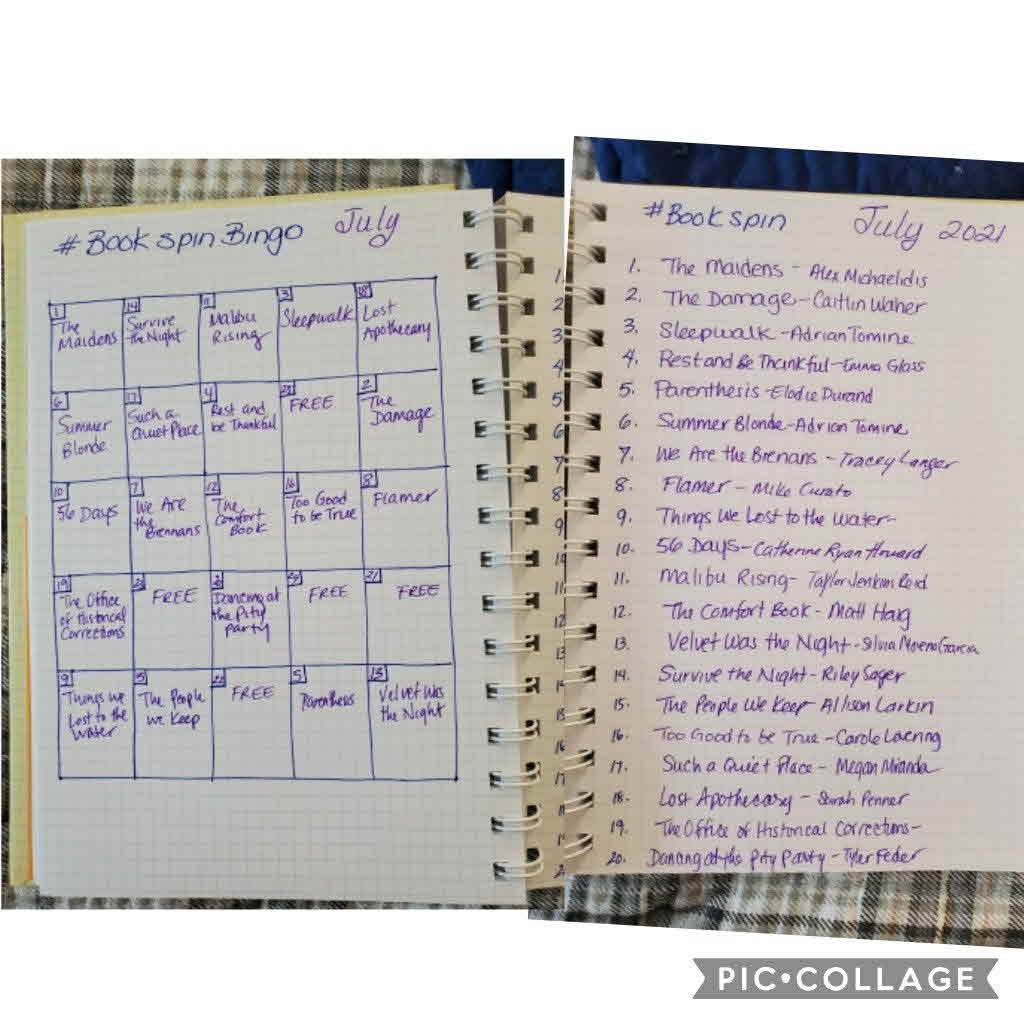 #Bookspin Bingo July
1 The Maidens
14 Survive the Night
11 Malibu Rising
3 Sleepwalk
18 Lost Apothecary
6 Summer Blonde
17 Such a Quiet Place
4 Rest and be Thankful
FREE
2 The Damage
10 56 Days
7 We Are the Brennans
12 The Comfort Book
16 Too Good to be True
8 Flamer
19 The Office of Historical Corrections
FREE
Dancing at the Pity Party
FREE
21 FREE
9 Things we Lost to the Water
The People we Keep
FREE
5 Parenthesis
13 Velvet Was the Night
#Bookspin July 2021
1. The Maidens - Alex Michaelidis
2. The Damage - Caitlin Waher
3. Sleepwalk - Adrian Tomine
4. Rest and Be Thankful - Emma Glass
5. Parenthesis - Elodie Durand
6. Summer Blonde - Adrian Tomine
7. We Are the Brenans - Tracey Langer
8. Flamer - Mike Curato
9. Things We Lost to the Water -
10. 56 Days - Catherine Ryan Howard
11. Malibu Rising - Taylor Jenkins Reid
12. The Comfort Book - Matt Haig
13. Velvet Was the Night - Silvia Moreno Garcia
14. Survive the Night - Riley Sager
15. The People We Keep Allison Larkin
16. Too Good to be True - Carole
17. Such a Quiet Place - Megan Miranda
18. Lost Apothecary - Sarah Penner
19. The Office of Historical Corrections -
20. Dancing at the Pity Party - Tyler Feder
PIC•COLLAGE